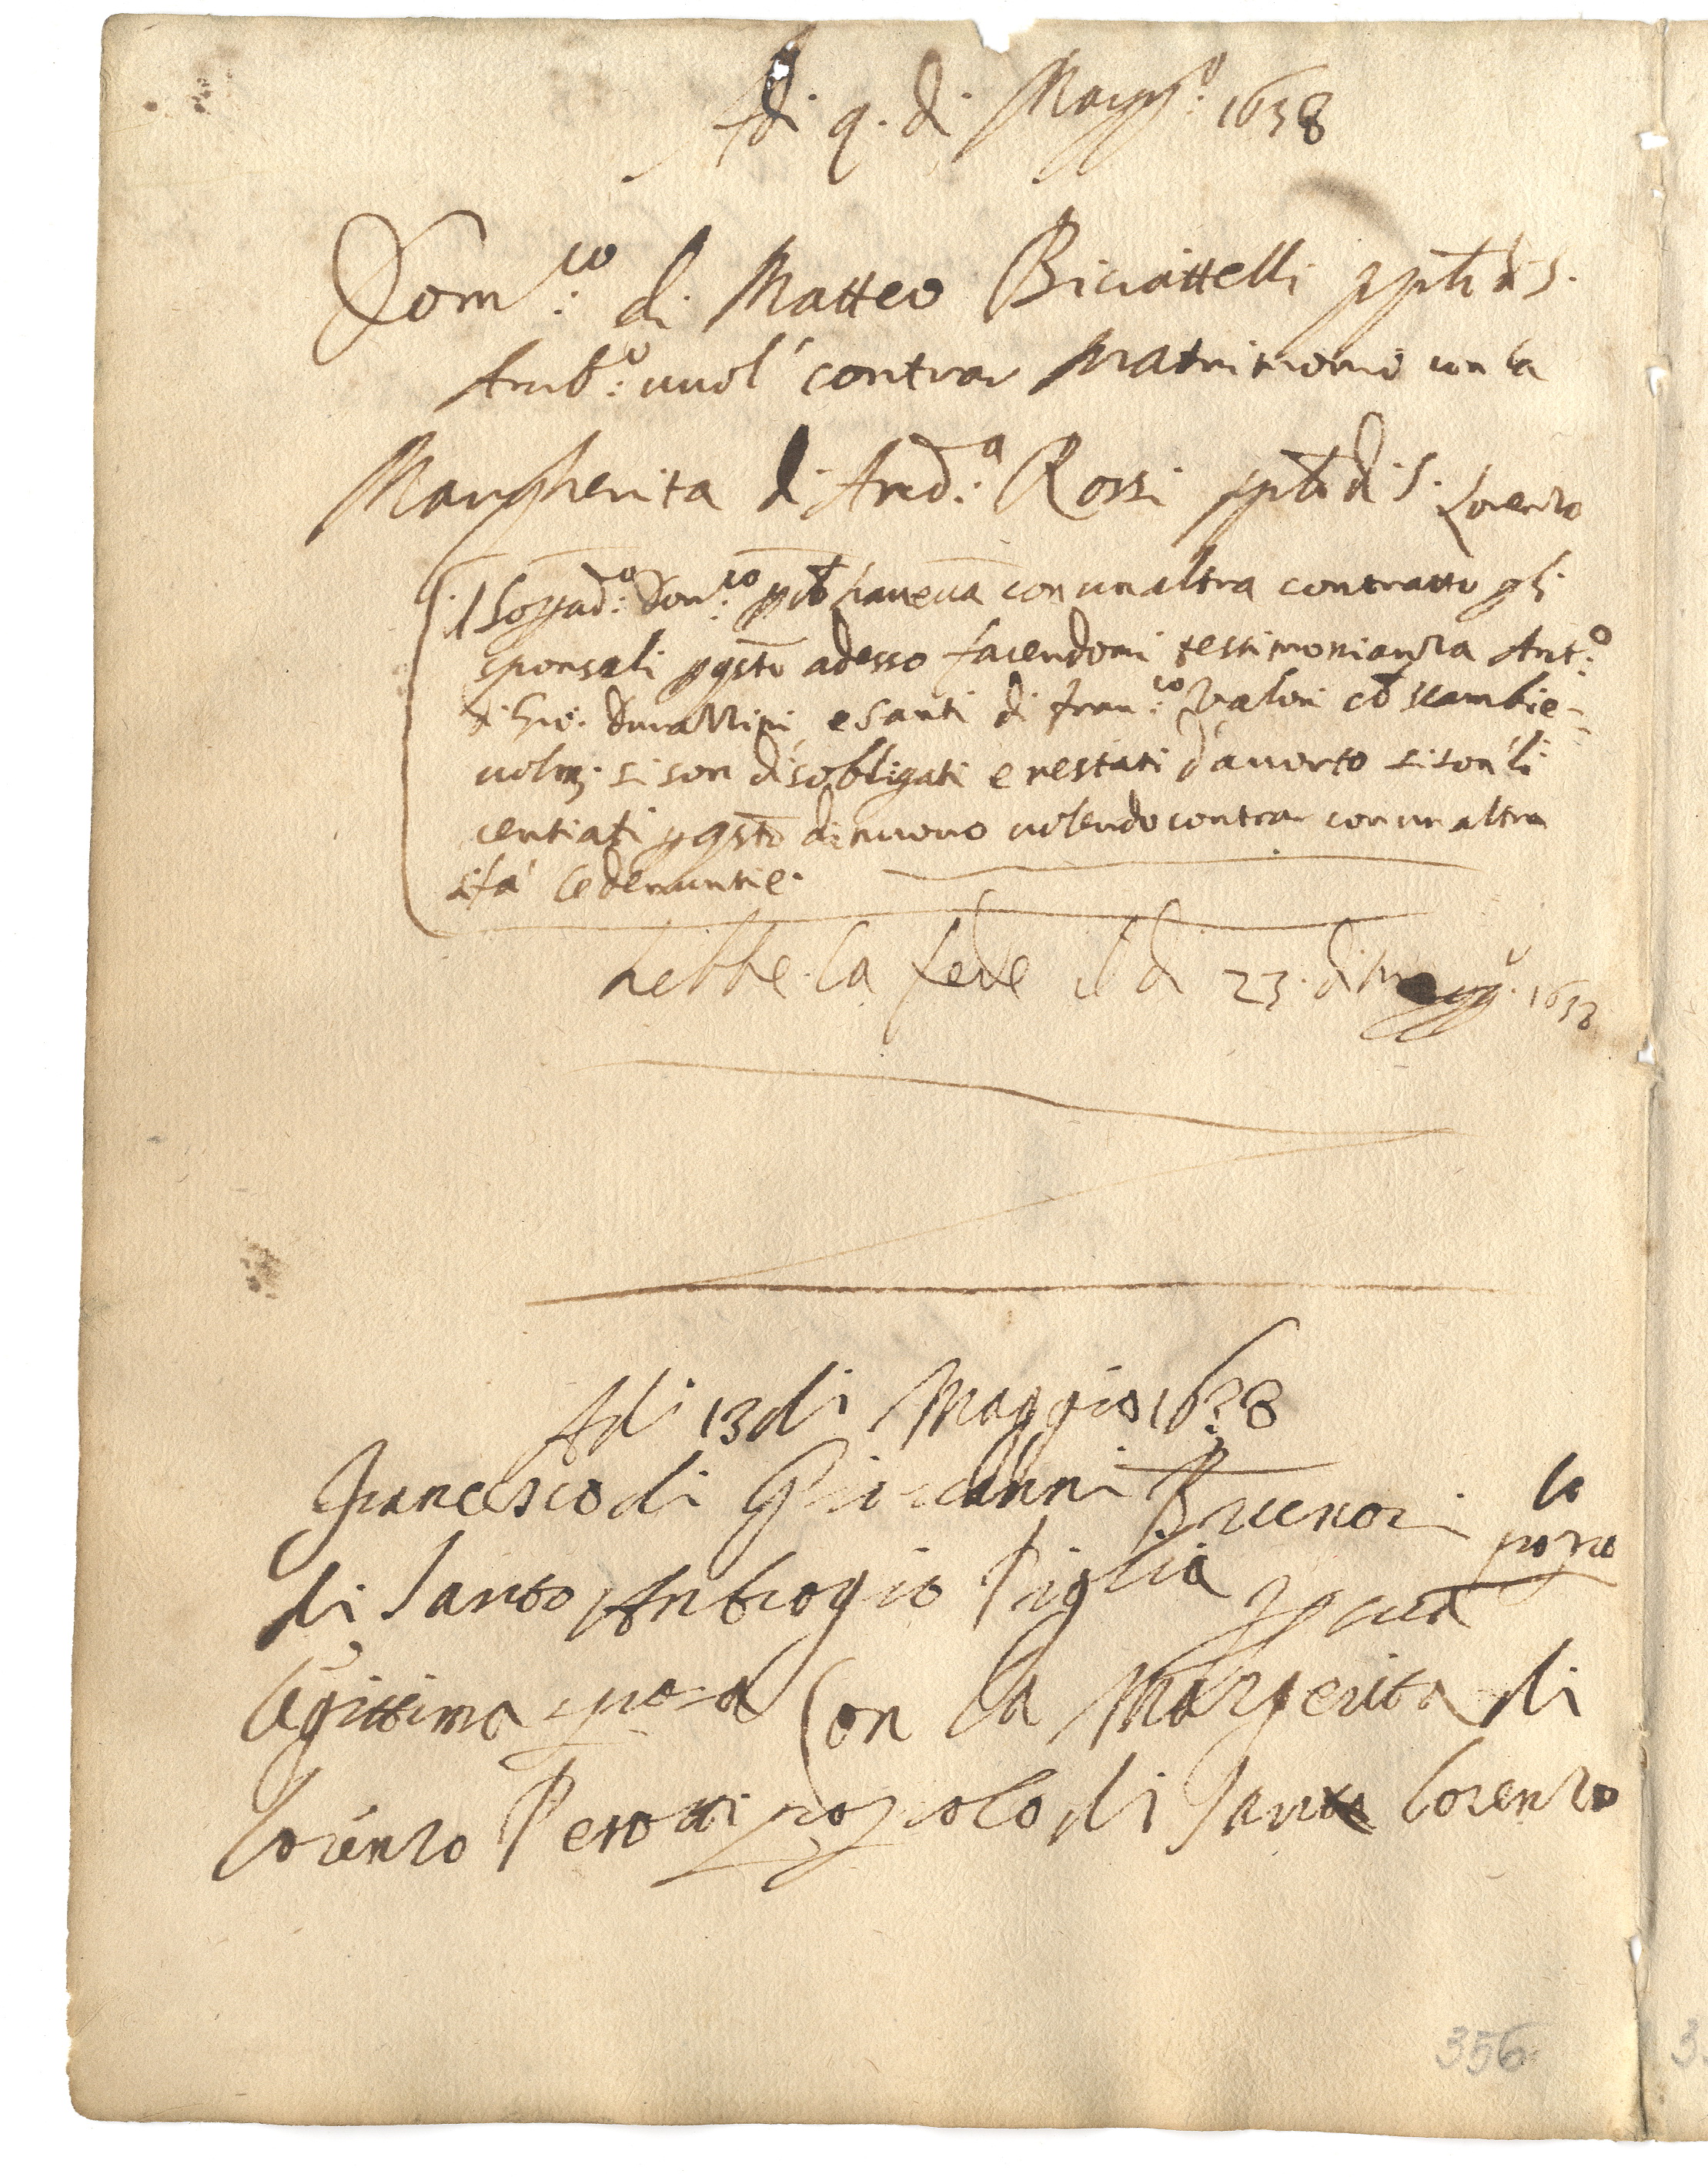 Adi 9. di Magg.o 1638
Dom.co di Matteo Biciattelli pp.lo di S.
Amb.o vuol contrar Matrimonio con la
Margherita di And.a Rossi pplo di S. Lorenzo
Il Soprad.o Dom.co haveva con un altra contratto gli
sponsali p qsto adesso facendomi testimonianza Ant.o
di Gio. e Santi di Fran.co Valori co scambie-
volm. si son disobligati e restati d'accordo si son li
centiati p qsto di nuovo volendo contrar con un altra
si fa le denuntie.
hebbe la fede il di 23. di Magg.o 1638
Adi 13 di Maggio 1638
Francesco di Giovanni Brunori
di Santo Anbrogio Piglia p sua
legittima sposa Con la Margerita di
lorenzo popolo di Santo lorenzo
356